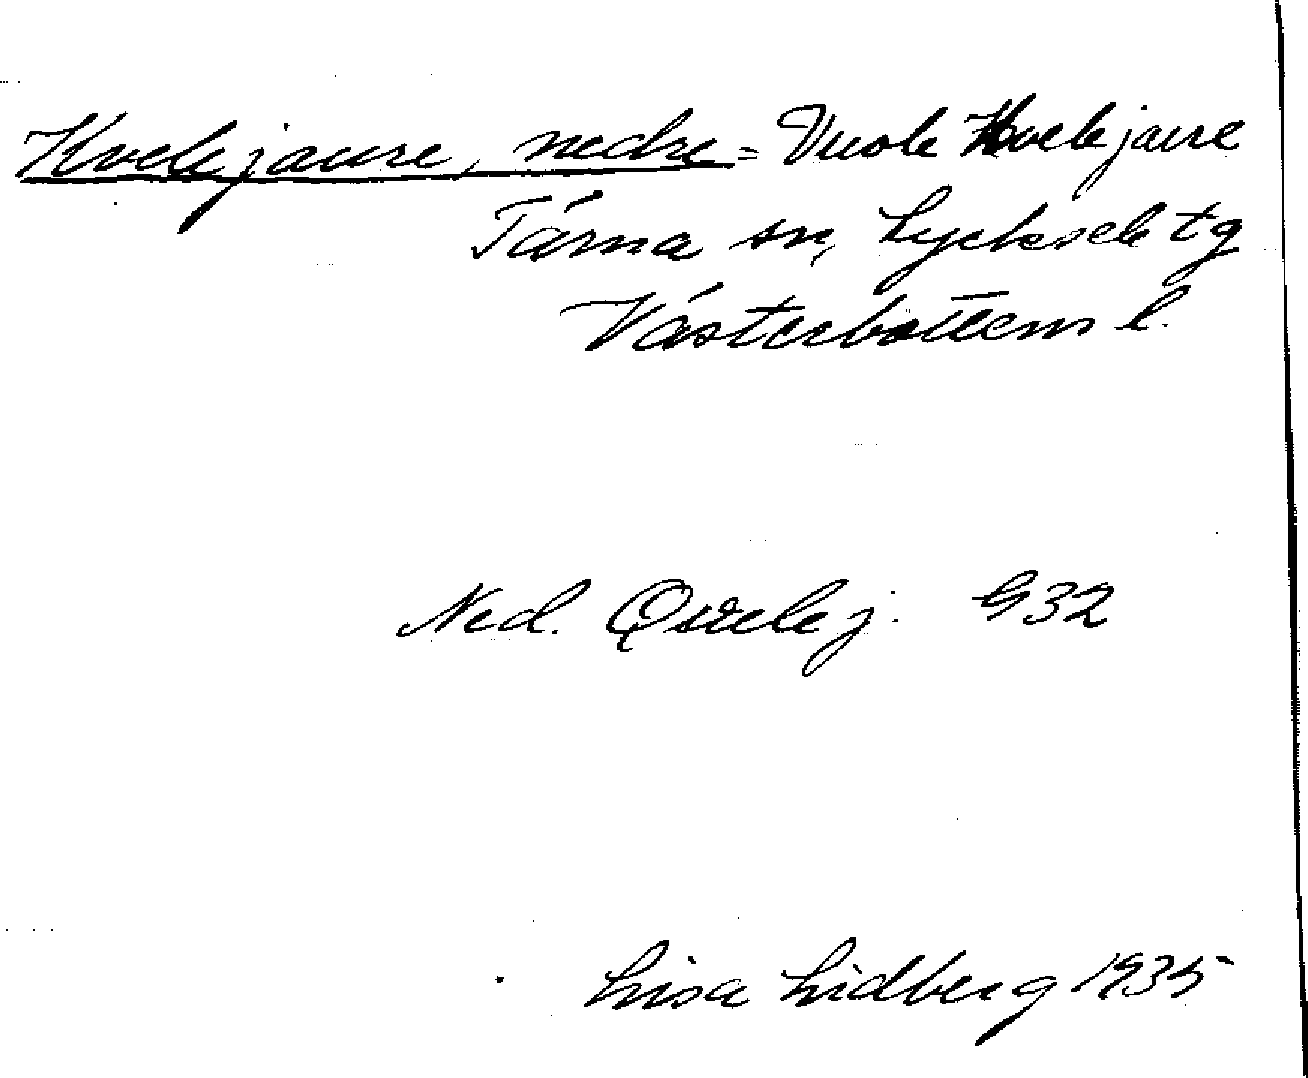 Kvelejaure, nedre = Vuole Kvelejaure
Tärna sn, Lycksele tg
Västerbottens l.
Ned. Qvelej. G32
Lisa Lidberg 1935